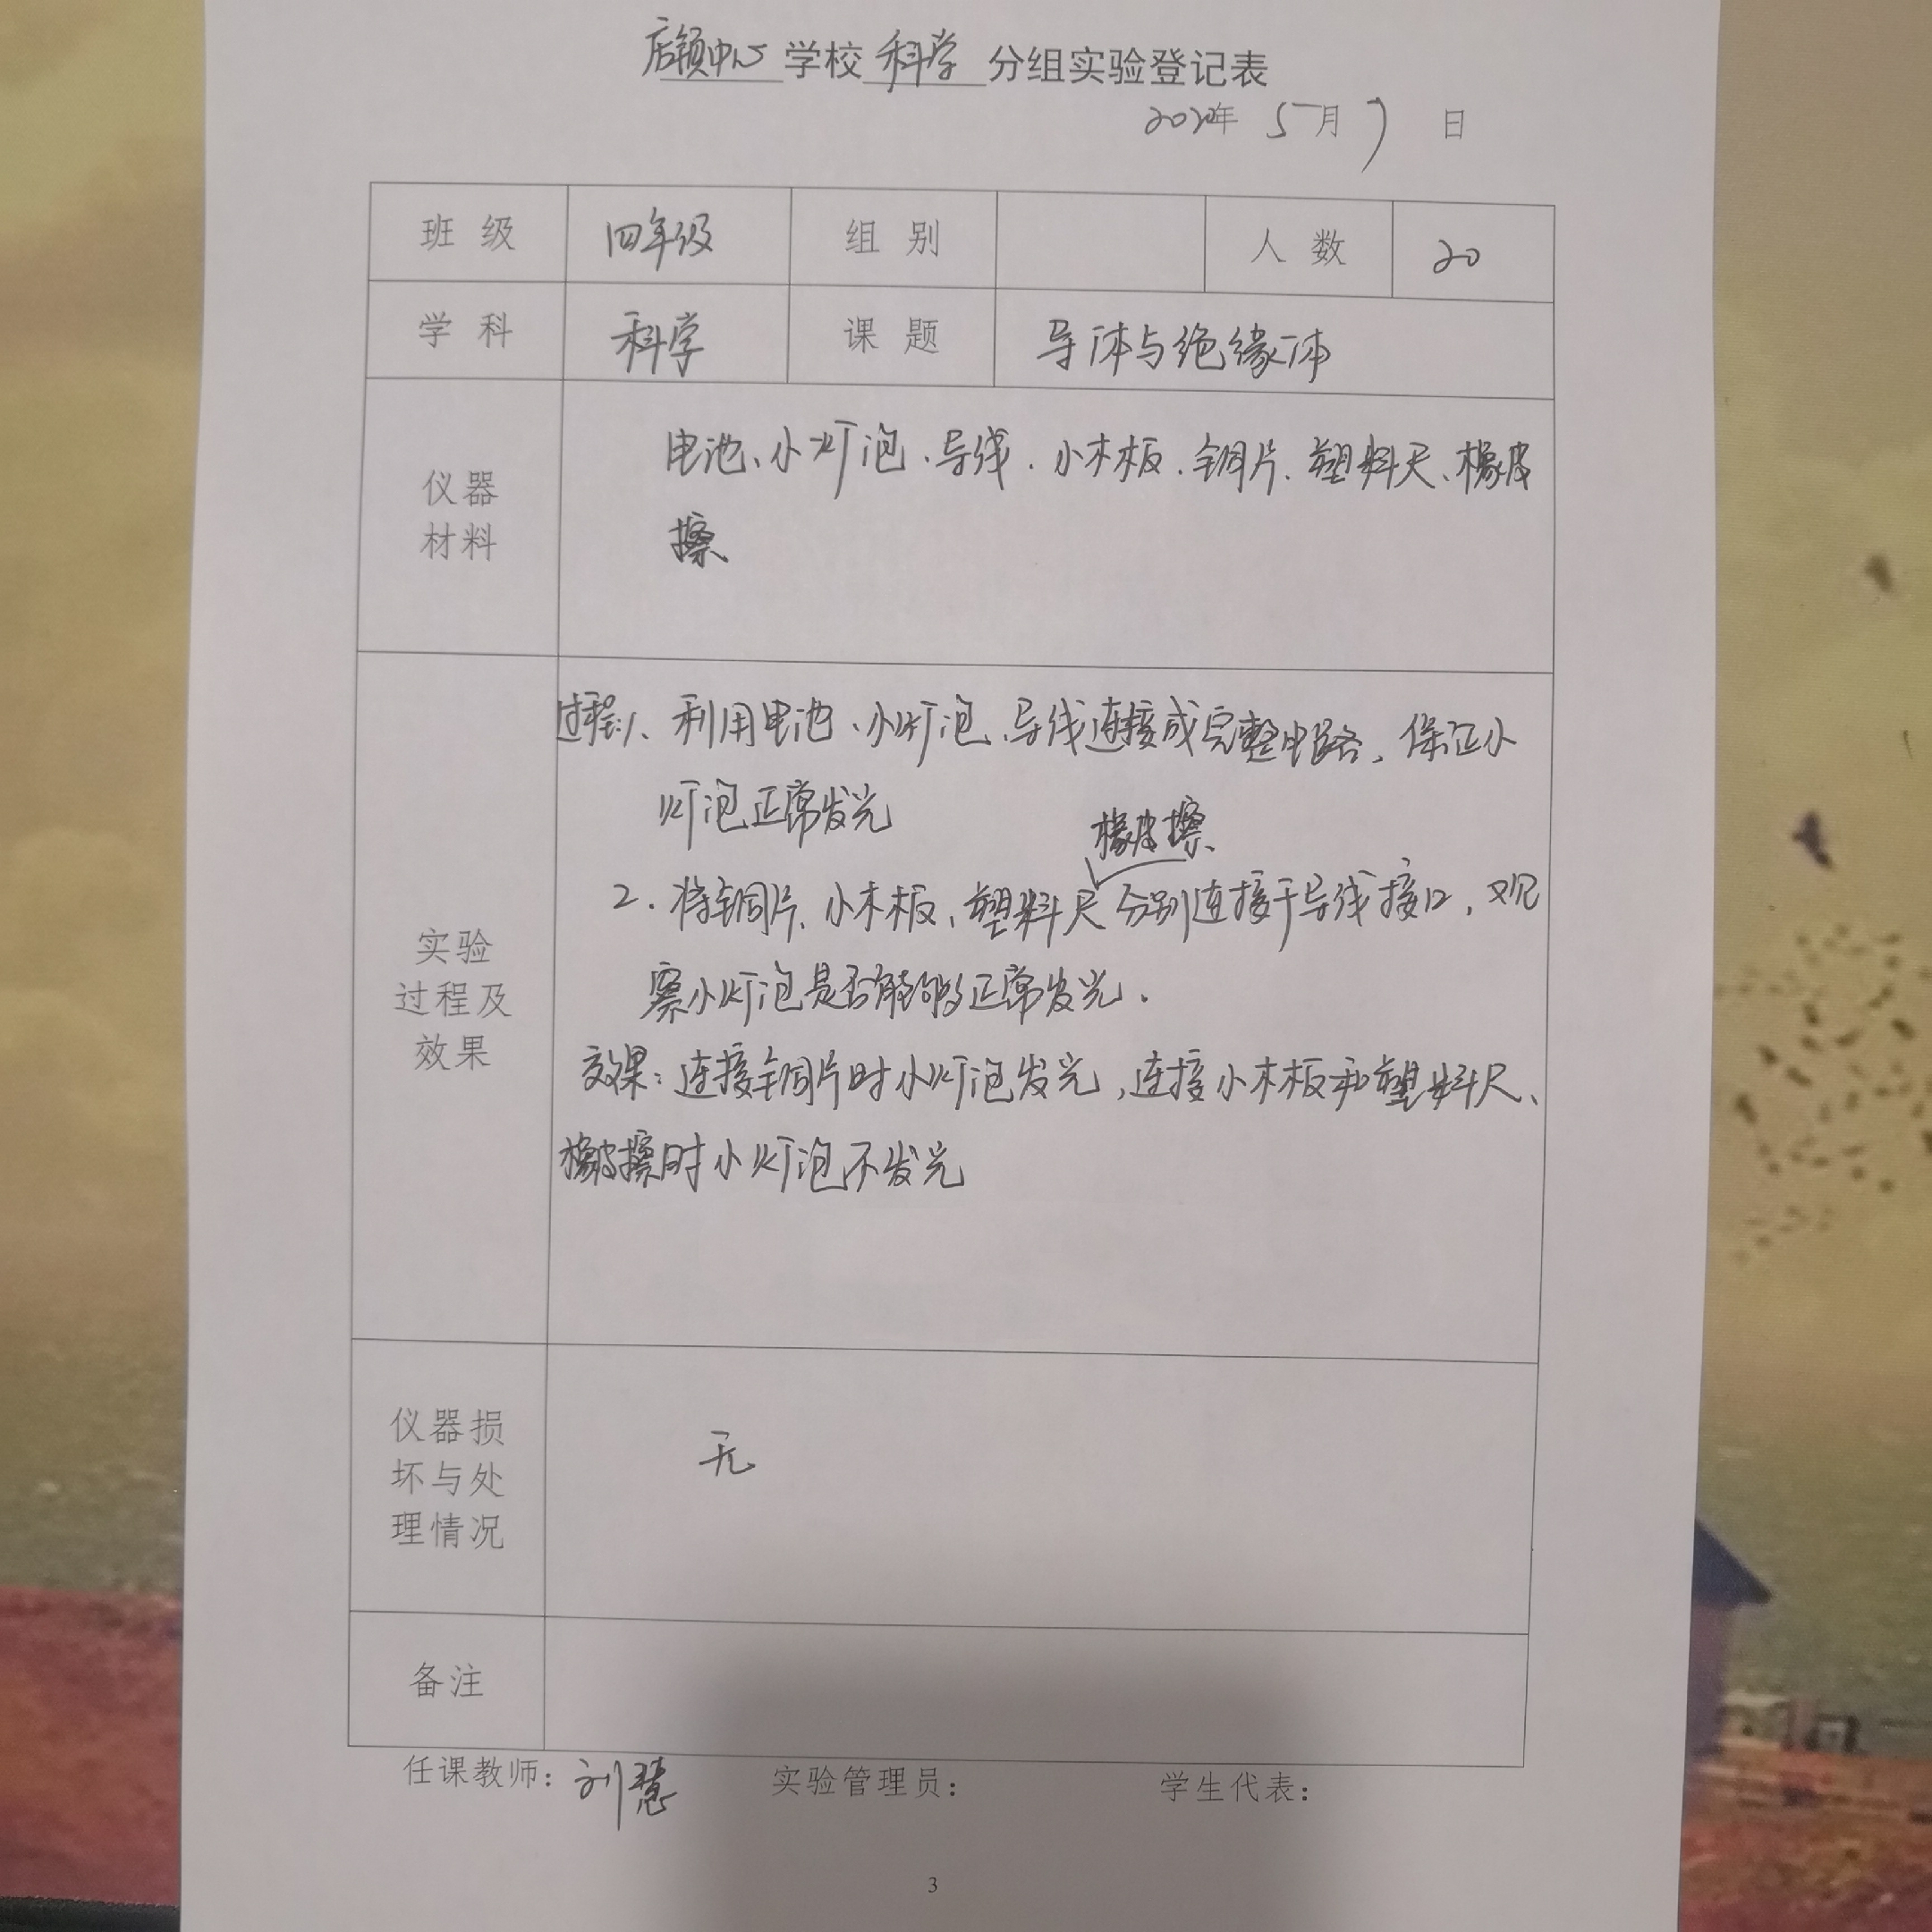 店镇中心学校科学分组实验登记表
202年 5月7日
班级 四年级 组别 人数 20
学科 科学 课题 导体与绝缘体
仪器
材料
电池、小灯泡、导线、小木板、铜片、塑料尺、橡皮
擦
实验
过程及
效果
过程:1、利用电池、小灯泡、导线连接成完整电路，保证小
灯泡正常发光
橡皮擦
2、将铜片、小木板、塑料尺分别连接于导线接口，观
察小灯泡是否能够正常发光.
效果：连接铜片时小灯泡发光，连接小木板和塑料尺、
橡皮擦时小灯泡不发光
仪器损
坏与处
理情况
无
备注
任课教师：刘慧 实验管理员： 学生代表：
3